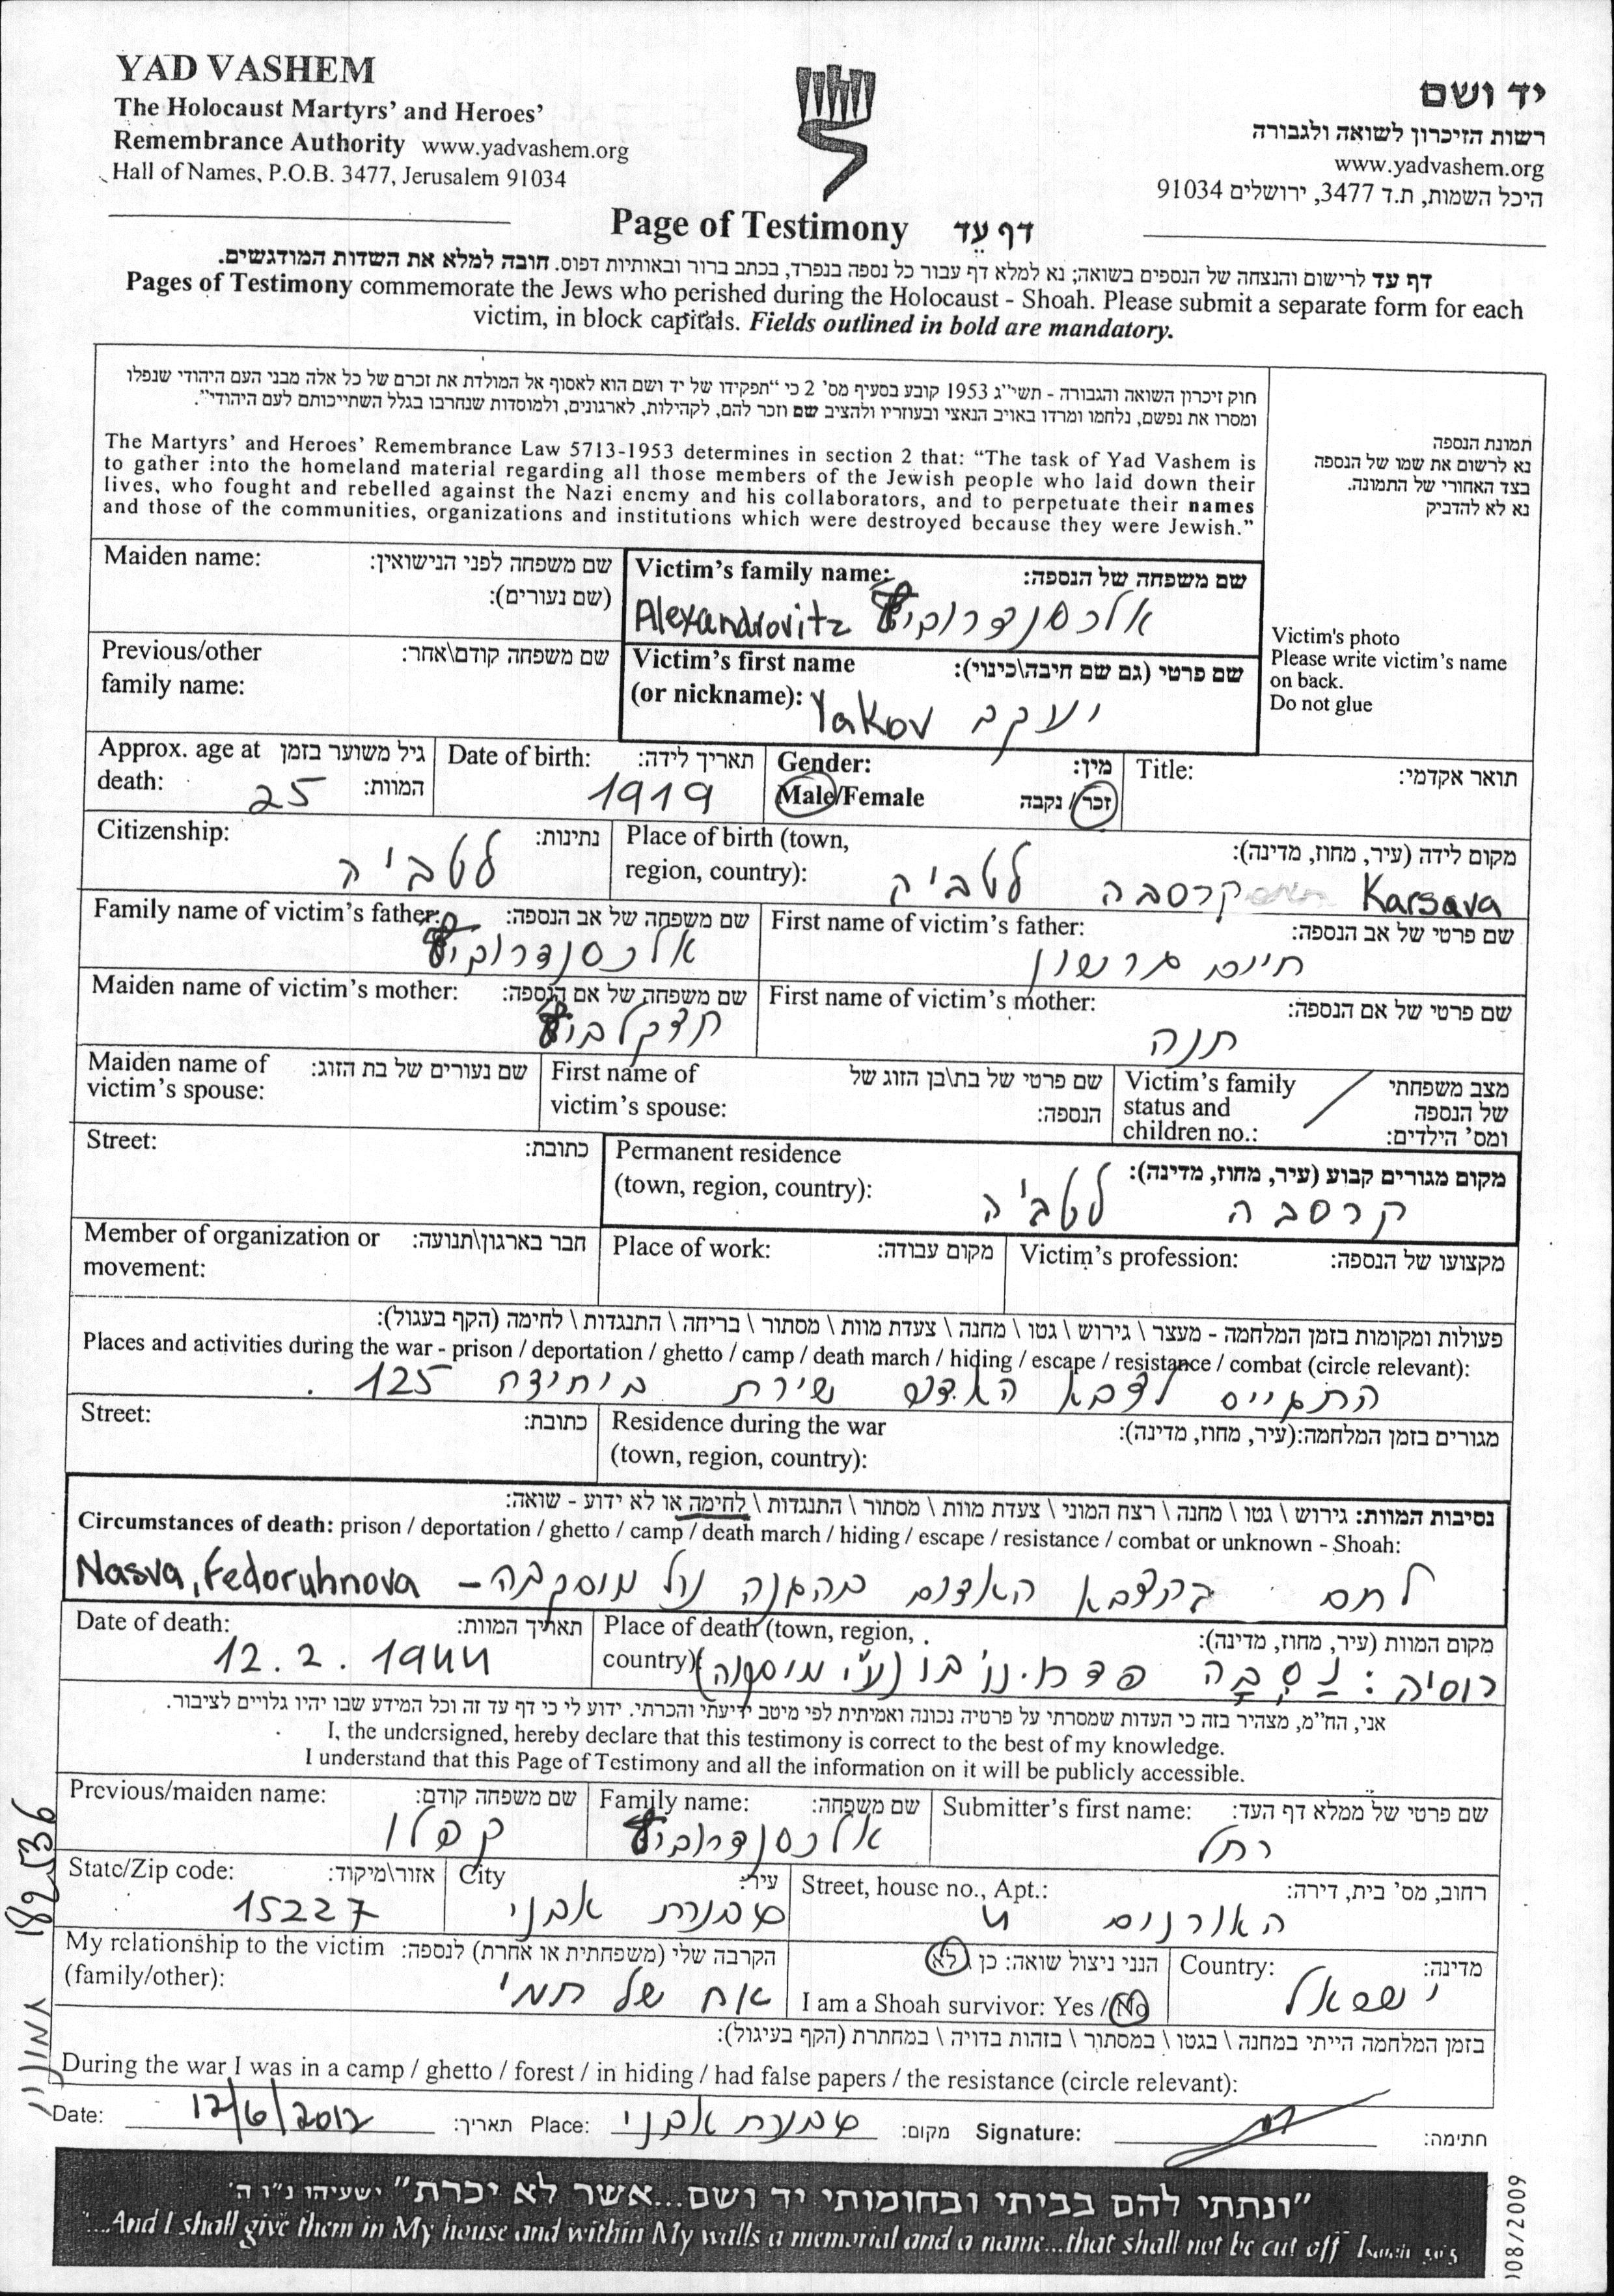 YAD VASHEM
The Holocaust Martyrs' and Heroes'
Remembrance Authority www.yadvashem.org
Hall of Names, P.O.B. 3477, Jerusalem 91034
יד ושם
רשות הזיכרון לשואה ולגבורה
www.yadvashem.org
היכל השמות, ת.ד 3477, ירושלים 91034
Page of Testimony דף עֵד
דף עד לרישום והנצחה של הנספים בשואה; נא למלא דף עבור כל נספה בנפרד, בכתב ברור ובאותיות דפוס. חובה למלא את השדות המודגשים.
Pages of Testimony commemorate the Jews who perished during the Holocaust - Shoah. Please submit a separate form for each
victim, in block capitals. Fields outlined in bold are mandatory.
חוק זיכרון השואה והגבורה - תשי"ג 1953 קובע בסעיף מס' 2 כי "תפקידו של יד ושם הוא לאסוף אל המולדת את זכרם של כל אלה מבני העם היהודי שנפלו
ומסרו את נפשם, נלחמו ומרדו באויב הנאצי ובעוזריו ולהציב שם וזכר להם, לקהילות, לארגונים, ולמוסדות שנחרבו בגלל השתייכותם לעם היהודי".
The Martyrs' and Heroes' Remembrance Law 5713-1953 determines in section 2 that: "The task of Yad Vashem is
to gather into the homeland material regarding all those members of the Jewish people who laid down their
lives, who fought and rebelled against the Nazi enemy and his collaborators, and to perpetuate their names
and those of the communities, organizations and institutions which were destroyed because they were Jewish."
תמונת הנספה
נא לרשום את שמו של הנספה
בצד האחורי של התמונה.
נא לא להדביק
Victim's photo
Please write victim's name
on back.
Do not glue
Maiden name: שם משפחה לפני הנישואין:
(שם נעורים):
Victim's family name: שם משפחה של הנספה:
Alexandrovitz אלכסנדרוביץ
Previous/other שם משפחה קודם\אחר:
family name:
Victim's first name שם פרטי (גם שם חיבה\כינוי):
(or nickname): Yakov יעקב
Approx. age at גיל משוער בזמן
death: 25 המוות:
Date of birth: תאריך לידה:
1919
Gender: מין:
Male/Female זכר / נקבה
Title: תואר אקדמי:
Citizenship: נתינות:
לטביה
Place of birth (town, מקום לידה (עיר, מחוז, מדינה):
region, country): Karsava קרסבה לטביה
Family name of victim's father: שם משפחה של אב הנספה:
אלכסנדרוביץ
First name of victim's father: שם פרטי של אב הנספה:
חיים גרשון
Maiden name of victim's mother: שם משפחה של אם הנספה:
First name of victim's mother: שם פרטי של אם הנספה:
חנה
Maiden name of שם נעורים של בת הזוג:
victim's spouse:
First name of שם פרטי של בת\בן הזוג של
victim's spouse: הנספה:
Victim's family מצב משפחתי
status and של הנספה
children no.: ומס' הילדים:
Street: כתובת:
Permanent residence מקום מגורים קבוע (עיר, מחוז, מדינה):
(town, region, country): קרסבה לטביה
Member of organization or חבר בארגון\תנועה:
movement:
Place of work: מקום עבודה:
Victim's profession: מקצועו של הנספה:
פעולות ומקומות בזמן המלחמה - מעצר \ גירוש \ גטו \ מחנה \ צעדת מוות \ מסתור \ בריחה \ התנגדות \ לחימה (הקף בעגול):
Places and activities during the war - prison / deportation / ghetto / camp / death march / hiding / escape / resistance / combat (circle relevant):
התגייס לצבא האדום שירת ביחידה 125.
Street: כתובת:
Residence during the war מגורים בזמן המלחמה:(עיר, מחוז, מדינה):
(town, region, country):
נסיבות המוות: גירוש \ גטו \ מחנה \ רצח המוני \ צעדת מוות \ מסתור \ התנגדות \ לחימה או לא ידוע - שואה:
Circumstances of death: prison / deportation / ghetto / camp / death march / hiding / escape / resistance / combat or unknown - Shoah:
לחם בצבא האדום בהגנה על מוסקבה - Nasva, Fedoruhnova
Date of death: תאריך המוות:
12.2.1944
Place of death (town, region, מקום המוות (עיר, מחוז, מדינה):
country) רוסיה: נַסְבָה
אני, הח"מ, מצהיר בזה כי העדות שמסרתי על פרטיה נכונה ואמיתית לפי מיטב ידיעתי והכרתי. ידוע לי כי דף עד זה וכל המידע שבו יהיו גלויים לציבור.
I, the undersigned, hereby declare that this testimony is correct to the best of my knowledge.
I understand that this Page of Testimony and all the information on it will be publicly accessible.
Previous/maiden name: שם משפחה קודם:
קפלן
Family name: שם משפחה:
אלכסנדרוביץ
Submitter's first name: שם פרטי של ממלא דף העד:
רחל
State/Zip code: אזור\מיקוד:
15227
City עיר:
כנרת
Street, house no., Apt.: רחוב, מס' בית, דירה:
האורנים
My relationship to the victim הקרבה שלי (משפחתית או אחרת) לנספה:
(family/other): אח של חמי
הנני ניצול שואה: כן \ לא
I am a Shoah survivor: Yes / No
Country: מדינה:
ישראל
בזמן המלחמה הייתי במחנה \ בגטו \ במסתור \ בזהות בדויה \ במחתרת (הקף בעיגול):
During the war I was in a camp / ghetto / forest / in hiding / had false papers / the resistance (circle relevant):
Date: 12/6/2012 תאריך: Place: מקום: Signature: חתימה:
"ונתתי להם בביתי ובחומותי יד ושם...אשר לא יכרת" ישעיהו נ"ו ה'
"...And I shall give them in My house and within My walls a memorial and a name...that shall not be cut off" Isaiah 56:5
08/2009
182536